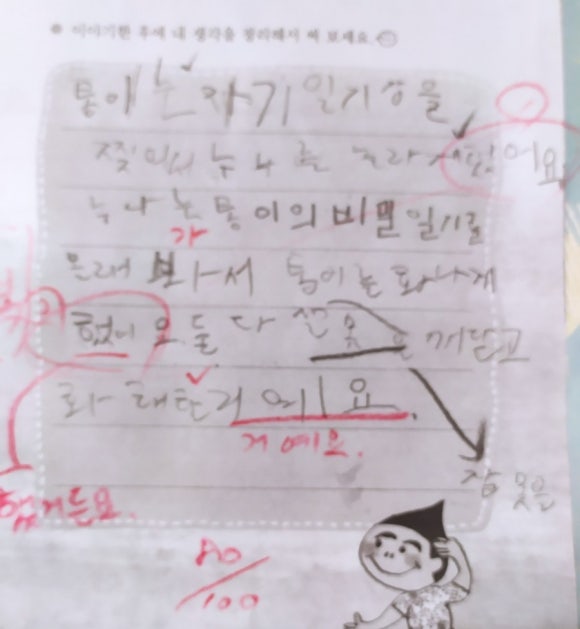 이야기한 후에 내 생각을 정리해서 써 보세요.
통이는 자기 일기장을
찢어서 누나를 놀라 어요
누나는 통이의 비밀 일기를
가
몰래 보아서 통이는 화나게
했어요 둘 다 을 깨닫고
화해한거예요.
거예요.
잘못을
했거든요.
80/100